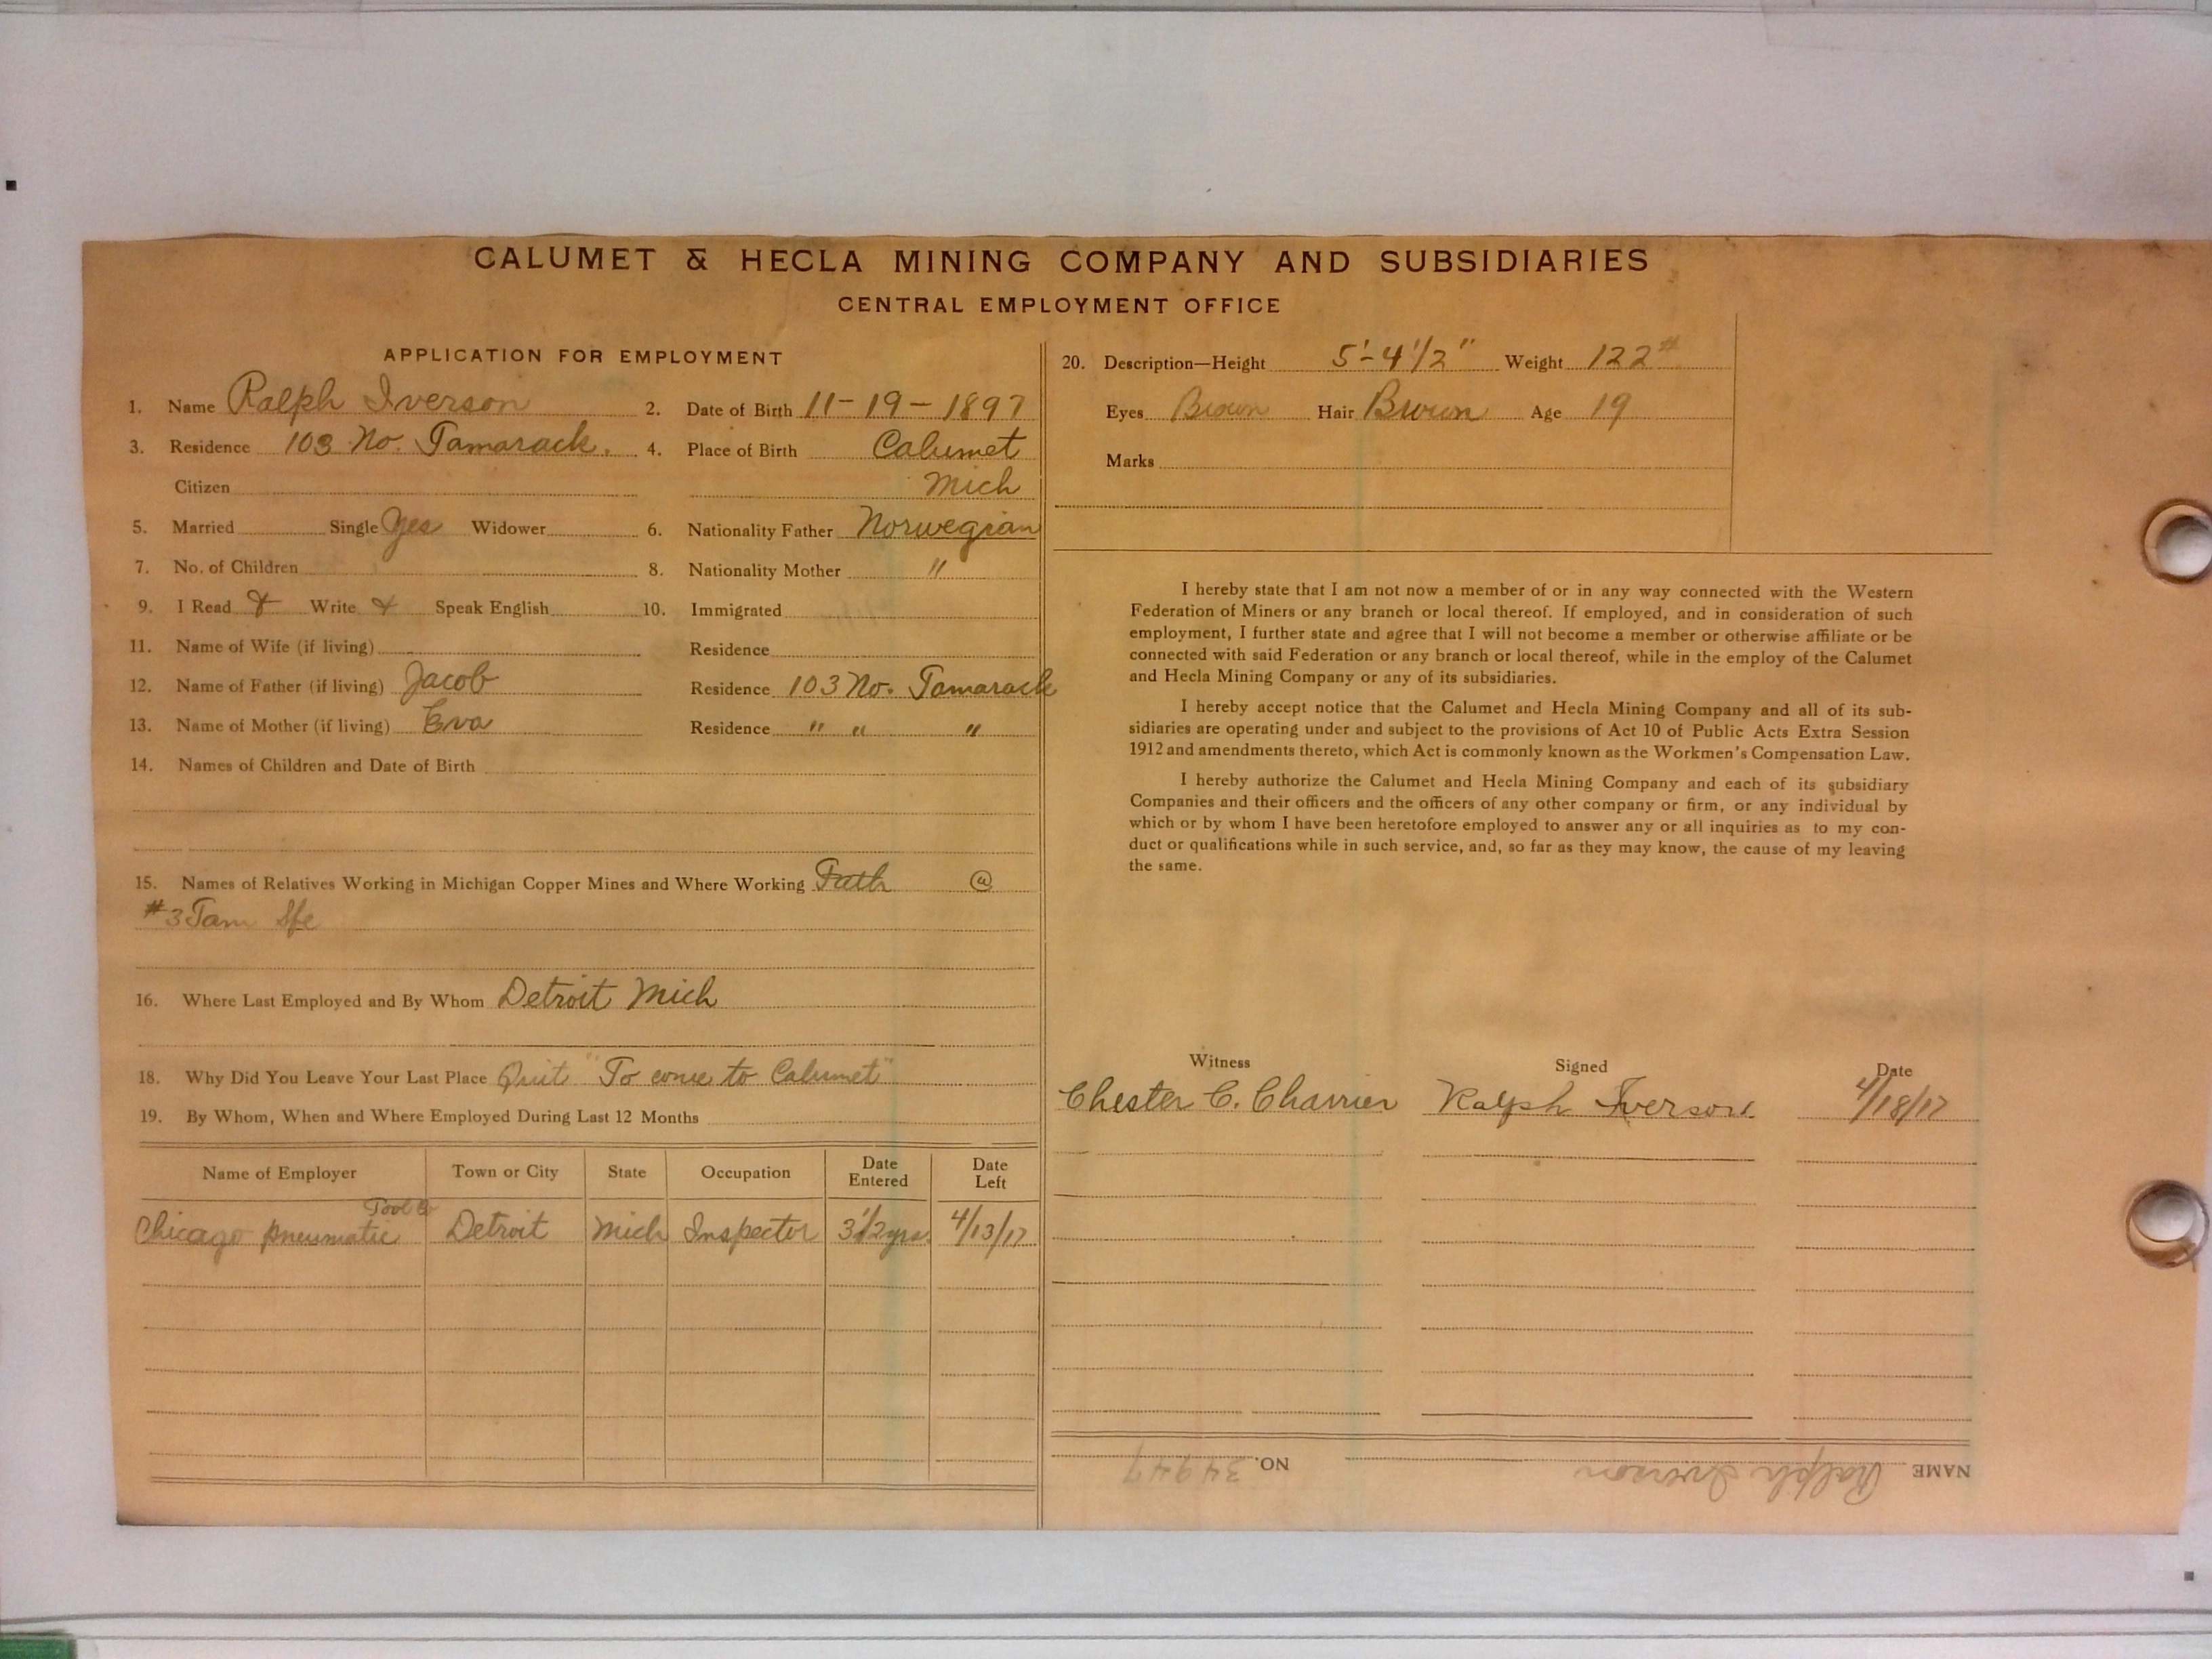 CALUMET & HECLA MINING COMPANY AND SUBSIDIARIES
CENTRAL EMPLOYMENT OFFICE
APPLICATION FOR EMPLOYMENT
1. Name Ralph Iverson 2. Date of Birth 11-19-1897
3. Residence 103 No. Tamarack. 4. Place of Birth Calumet
Citizen Mich
5. Married Single Yes Widower 6. Nationality Father Norwegian
7. No. of Children 8. Nationality Mother "
9. I Read Write Speak English 10. Immigrated
11. Name of Wife (if living) Residence
12. Name of Father (if living) Jacob Residence 103 No. Tamarack
13. Name of Mother (if living) Eva Residence " " "
14. Names of Children and Date of Birth
15. Names of Relatives Working in Michigan Copper Mines and Where Working Fath @
#3 Tam
16. Where Last Employed and By Whom Detroit Mich
18. Why Did You Leave Your Last Place Quit "To come to Calumet"
19. By Whom, When and Where Employed During Last 12 Months
Name of Employer Town or City State Occupation Date Entered Date Left
Chicago Pneumatic Tool Co Detroit Mich Inspector 3 1/2 yrs. 4/13/17
20. Description—Height 5'-4 1/2" Weight 122#
Eyes Brown Hair Brown Age 19
Marks
I hereby state that I am not now a member of or in any way connected with the Western
Federation of Miners or any branch or local thereof. If employed, and in consideration of such
employment, I further state and agree that I will not become a member or otherwise affiliate or be
connected with said Federation or any branch or local thereof, while in the employ of the Calumet
and Hecla Mining Company or any of its subsidiaries.
I hereby accept notice that the Calumet and Hecla Mining Company and all of its sub-
sidiaries are operating under and subject to the provisions of Act 10 of Public Acts Extra Session
1912 and amendments thereto, which Act is commonly known as the Workmen's Compensation Law.
I hereby authorize the Calumet and Hecla Mining Company and each of its subsidiary
Companies and their officers and the officers of any other company or firm, or any individual by
which or by whom I have been heretofore employed to answer any or all inquiries as to my con-
duct or qualifications while in such service, and, so far as they may know, the cause of my leaving
the same.
Witness Signed Date
Chester C. Charrier Ralph Iverson 4/18/17
NAME Ralph Iverson NO. 34947